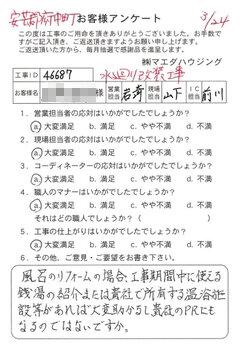 安芸郡府中町 お客様アンケート 3/24
この度は工事のご用命を頂きありがとうございました。お手数で
すがご記入頂き、ご返送頂きますようお願い申し上げます。
ご返送頂いた方から、毎月抽選で感謝品を進呈します。
㈱マエダハウジング
工事ID 46687 水廻り改装工事
お客様名 営業担当 岩崎 現場担当 山下 IC担当 前川
1．営業担当者の応対はいかがでしたでしょうか？
a.大変満足 b.満足 c.やや不満 d.不満
2．現場担当者の応対はいかがでしたでしょうか？
a.大変満足 b.満足 c.やや不満 d.不満
3．コーディネーターの応対はいかがでしたでしょうか？
a.大変満足 b.満足 c.やや不満 d.不満
4．職人のマナーはいかがでしたでしょうか？
a.大変満足 b.満足 c.やや不満 d.不満
それはどの職人でしょうか？（ ）
5．工事の仕上がりはいかがでしたでしょうか？
a.大変満足 b.満足 c.やや不満 d.不満
6．その他、ご意見・ご要望をお書き下さい。
風呂のリフォームの場合、工事期間中に使える
銭湯の紹介または貴社で所有する温浴施
設等があれば大変助かるし貴社のPRにも
なるのではないですか。